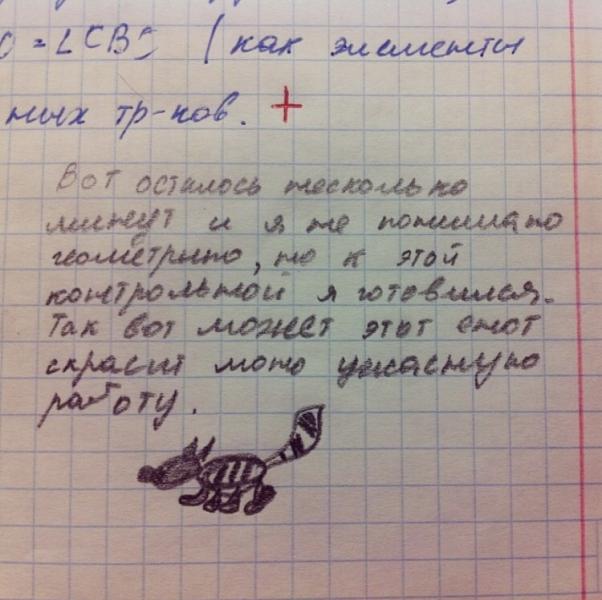 = ∠CBS (как элементы
ных тр-ков. +
Вот осталось несколько
минут и я не понимаю
геометрию, но к этой
контрольной я готовился.
Так вот может этот енот
скрасит мою ужасную
работу.